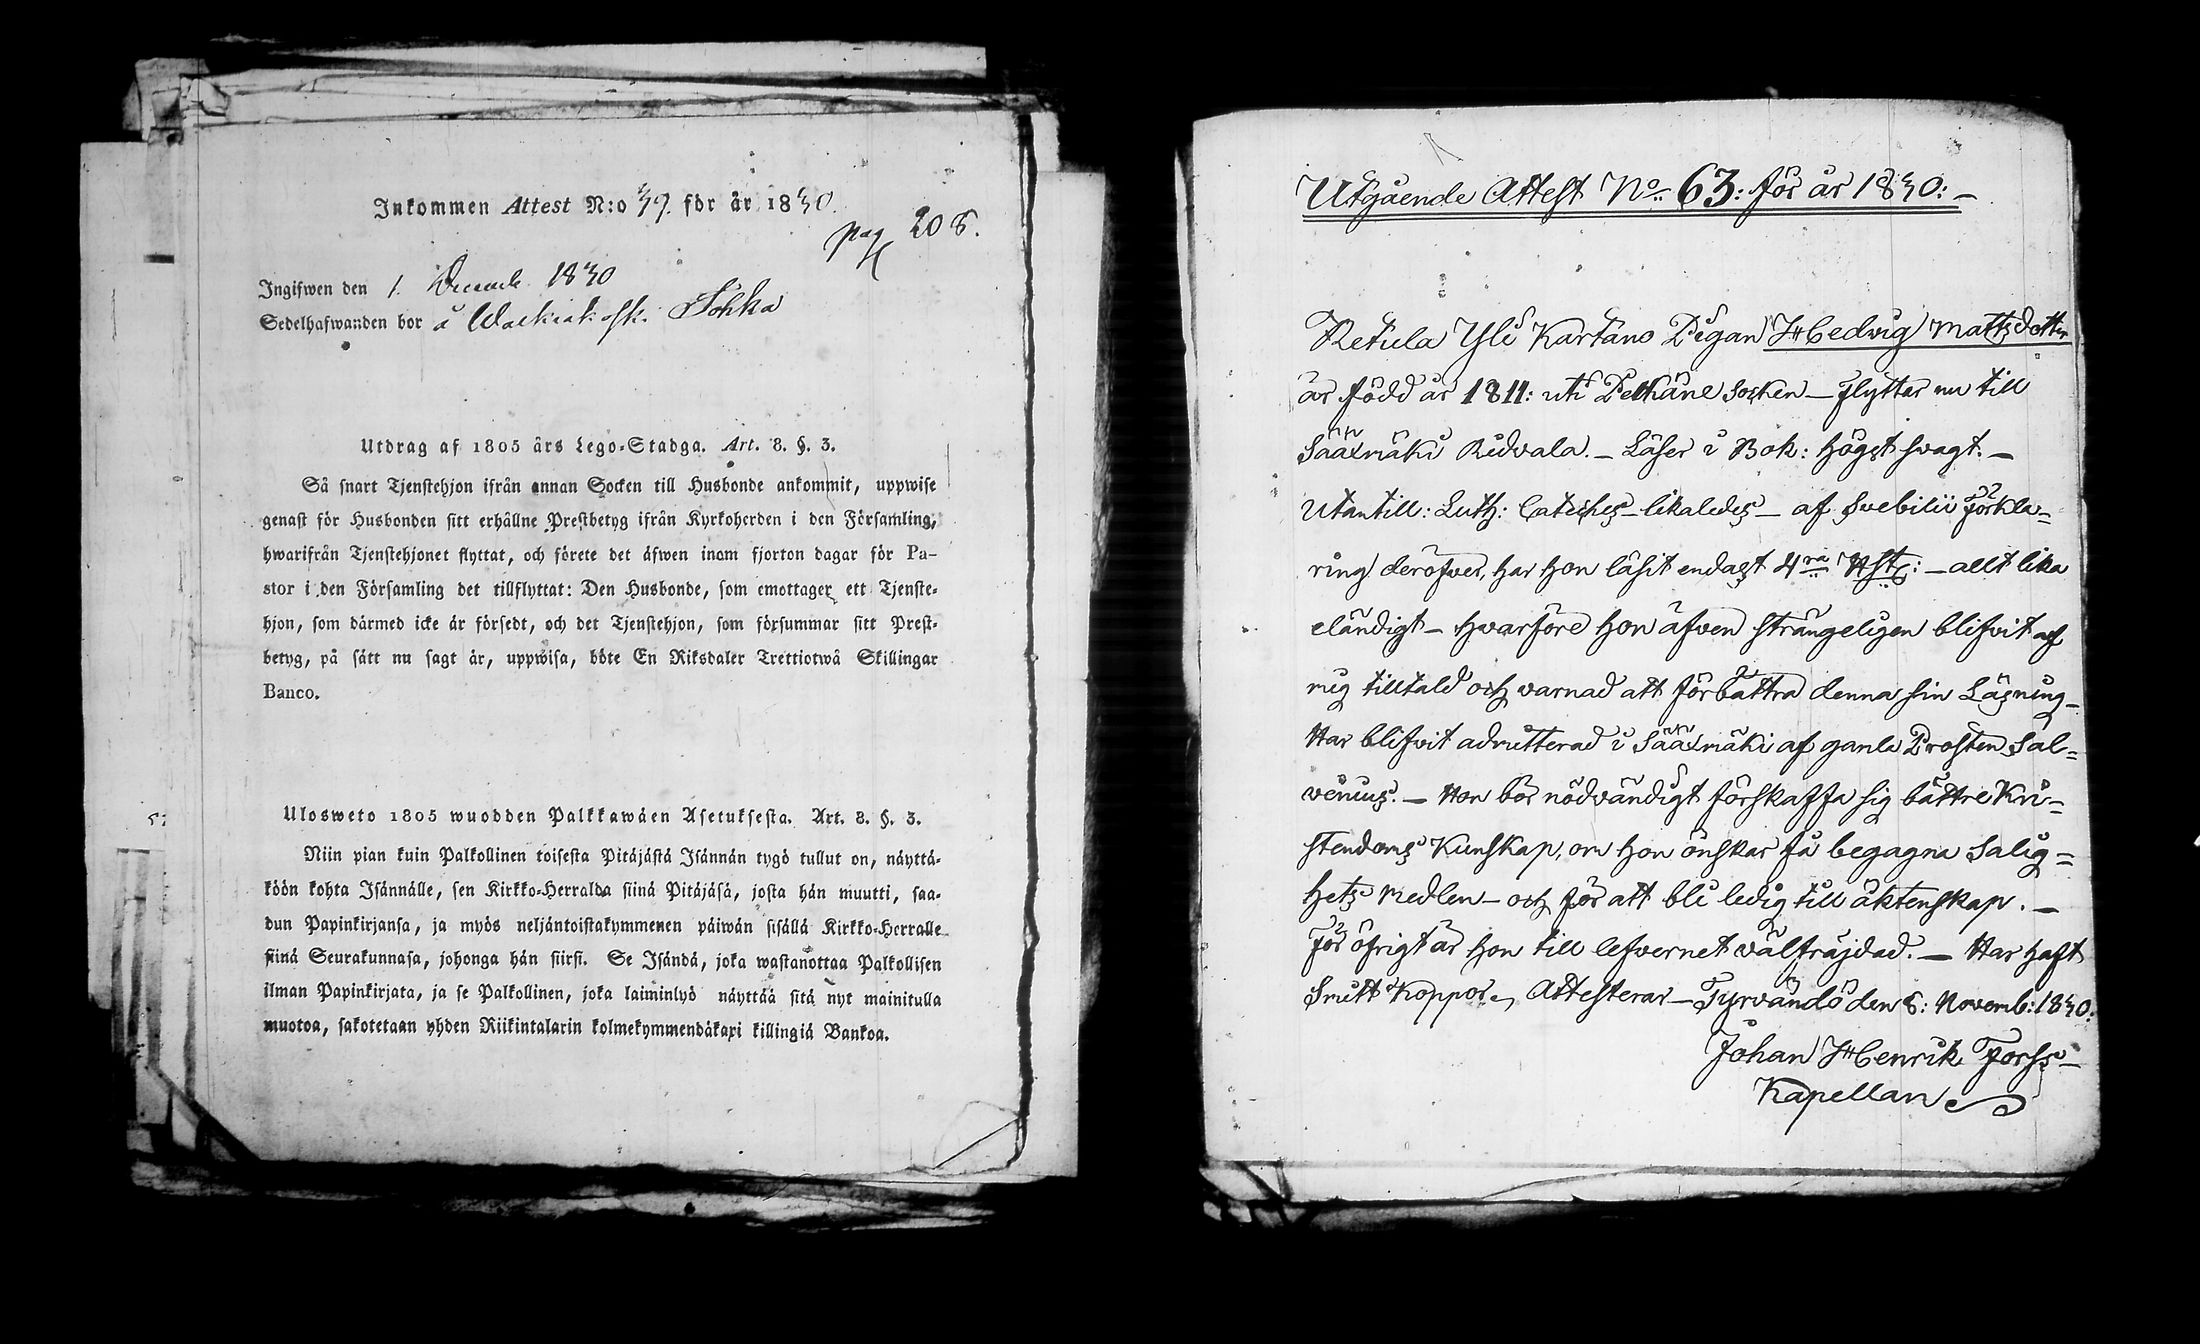 Inkommen Attest N:o 39. för år 1830.
pag 208.
Ingifwen den 1. Decemb. 1830
Sedelhafwanden bor å Walkiakoski Sohka
Utdrag af 1805 års Lego-Stadga. Art. 8. §. 3.
Så snart Tjenstehjon ifrån annan Socken till Husbonde ankommit, uppwise
genast för Husbonden sitt erhållne Prestbetyg ifrån Kyrkoherden i den Församling,
hwarifrån Tjenstehjonet flyttat, och förete det äfwen inam fjorton dagar för Pa-
stor i den Församling det tillflyttat: Den Husbonde, som emottager ett Tjenste-
hjon, som därmed icke är försedt, och det Tjenstehjon, som försummar sitt Prest-
betyg, på sätt nu sagt är, uppwisa, böte En Riksdaler Trettiotwå Skillingar
Banco.
Ulosweto 1805 wuodden Palkkawäen Asetuksesta. Art. 8. §. 3.
Niin pian kuin Palkollinen toisesta Pitäjästä Isännän tygö tullut on, näyttä-
köön kohta Isännälle, sen Kirkko-Herralda siinä Pitäjäsä, josta hän muutti, saa-
dun Papinkirjansa, ja myös neljäntoistakymmenen päiwän sisällä Kirkko-Herralle
siinä Seurakunnasa, johonga hän siirsi. Se Isändä, joka wastanottaa Palkollisen
ilman Papinkirjata, ja se Palkollinen, joka laiminlyö näyttää sitä nyt mainitulla
muotoa, sakotetaan yhden Riikintalarin kolmekymmendäkaxi killingiä Bankoa.
Utgående Attest No 63: för år 1830: –
Retula Yli Kartano Pigan Hedvig Mattsdotter
är född år 1811: uti Pelkäne Socken – flyttar nu till
Sääxmäki Ridvala. – Läser i Bok: högst svagt. –
Utantill: Luth: Cateches – likaledes – af Svebilii förkla=
ring deröfver, har hon läsit endast 4ra Hst: – allt lika
eländigt – hvarföre hon äfven strängeligen blifvit af
mig tilltald och varnad att förbättra denna sin Läsning –
Har blifvit admitterad i Sääxmäki af gamla Prosten Sal=
venius. – Hon bör nödvändigt förskaffa sig bättre Kri=
stendoms Kunskap, om hon önskar få begagna Salig=
hets Medlen – och för att bli ledig till äktenskap. –
För öfrigt är hon till lefvernet välfräjdad. – Har haft
Smitt Koppor, Attesterar – Tyrvändö den 8: Novemb: 1830:
Johan Henrik Forss –
Kapellan